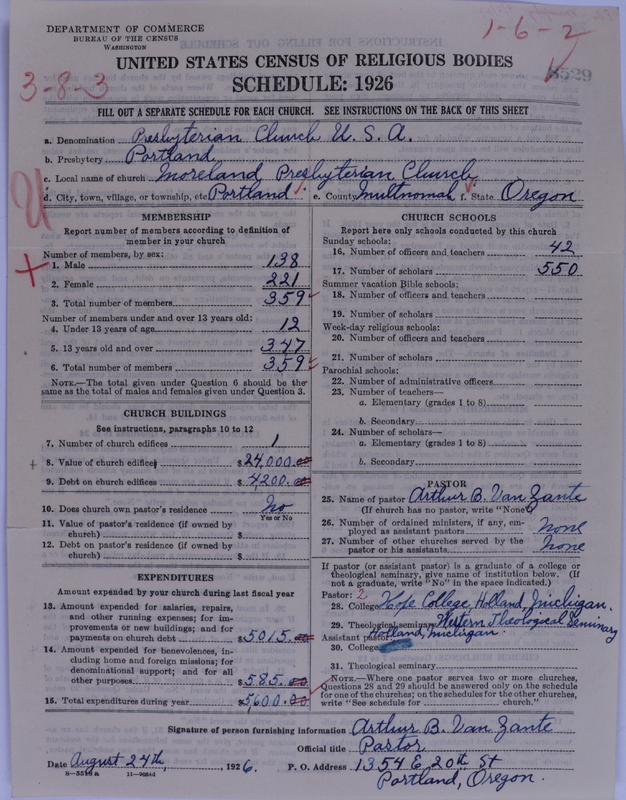 DEPARTMENT OF COMMERCE
BUREAU OF THE CENSUS
WASHINGTON
1-6-2
8529
3-8-3
UNITED STATES CENSUS OF RELIGIOUS BODIES
SCHEDULE: 1926
FILL OUT A SEPARATE SCHEDULE FOR EACH CHURCH. SEE INSTRUCTIONS ON THE BACK OF THIS SHEET
a. Denomination Presbyterian Church U.S.A.
b. Presbytery Portland
c. Local name of church Moreland Presbyterian Church
d. City, town, village, or township, etc. Portland e. County Multnomah f. State Oregon
U
MEMBERSHIP
Report number of members according to definition of
member in your church
Number of members, by sex:
1. Male 138
2. Female 221
3. Total number of members 359
Number of members under and over 13 years old:
4. Under 13 years of age 12
5. 13 years old and over 347
6. Total number of members 359
NOTE.—The total given under Question 6 should be the
same as the total of males and females given under Question 3.
CHURCH BUILDINGS
See instructions, paragraphs 10 to 12
7. Number of church edifices 1
8. Value of church edifices $24,000.00
9. Debt on church edifices $4200.00
10. Does church own pastor's residence No
Yes or No
11. Value of pastor's residence (if owned by
church) $
12. Debt on pastor's residence (if owned by
church) $
EXPENDITURES
Amount expended by your church during last fiscal year
13. Amount expended for salaries, repairs,
and other running expenses; for im-
provements or new buildings; and for
payments on church debt $5015.00
14. Amount expended for benevolences, in-
cluding home and foreign missions; for
denominational support; and for all
other purposes $585.00
15. Total expenditures during year $5600.00
CHURCH SCHOOLS
Report here only schools conducted by this church
Sunday schools:
16. Number of officers and teachers 42
17. Number of scholars 550
Summer vacation Bible schools:
18. Number of officers and teachers
19. Number of scholars
Week-day religious schools:
20. Number of officers and teachers
21. Number of scholars
Parochial schools:
22. Number of administrative officers
23. Number of teachers—
a. Elementary (grades 1 to 8)
b. Secondary
24. Number of scholars—
a. Elementary (grades 1 to 8)
b. Secondary
PASTOR
25. Name of pastor Arthur B. Van Zante
(If church has no pastor, write "None")
26. Number of ordained ministers, if any, em-
ployed as assistant pastors None
27. Number of other churches served by the
pastor or his assistants None
If pastor (or assistant pastor) is a graduate of a college or
theological seminary, give name of institution below. (If
not a graduate, write "No" in the space indicated.)
Pastor: 2
28. College Hope College, Holland, Michigan.
29. Theological seminary Western Theological Seminary
Assistant pastor: Holland, Michigan.
30. College
31. Theological seminary
NOTE.—Where one pastor serves two or more churches,
Questions 28 and 29 should be answered only on the schedule
for one of the churches; on the schedules for the other churches,
write "See schedule for church."
Signature of person furnishing information Arthur B. Van Zante
Official title Pastor
Date August 24th, 1926. P. O. Address 1354 E 20th St
Portland, Oregon.